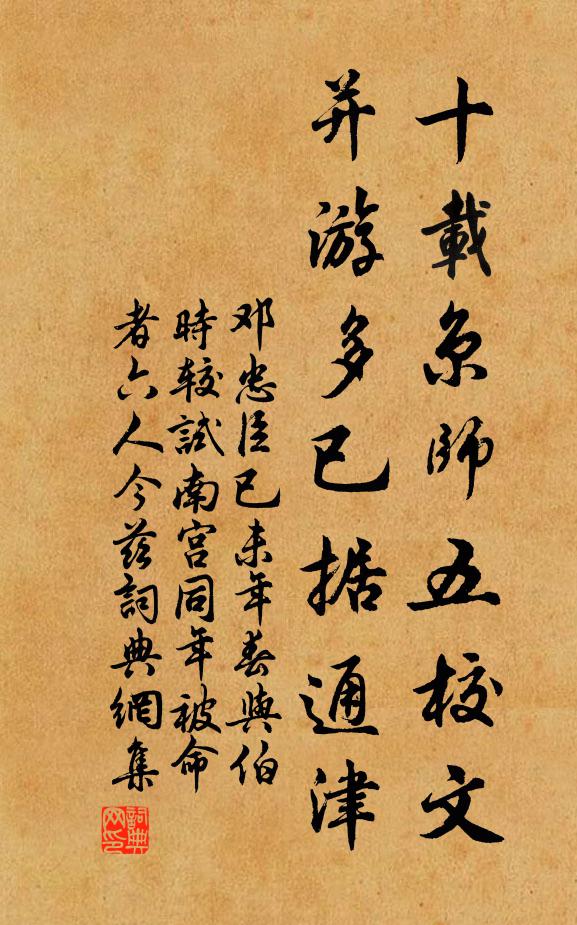 十載京師五校文
并游多已据通津
邓忠臣已未年春與伯
時較試南宫同年被命
者六人今兹詞典網集
詞典网印